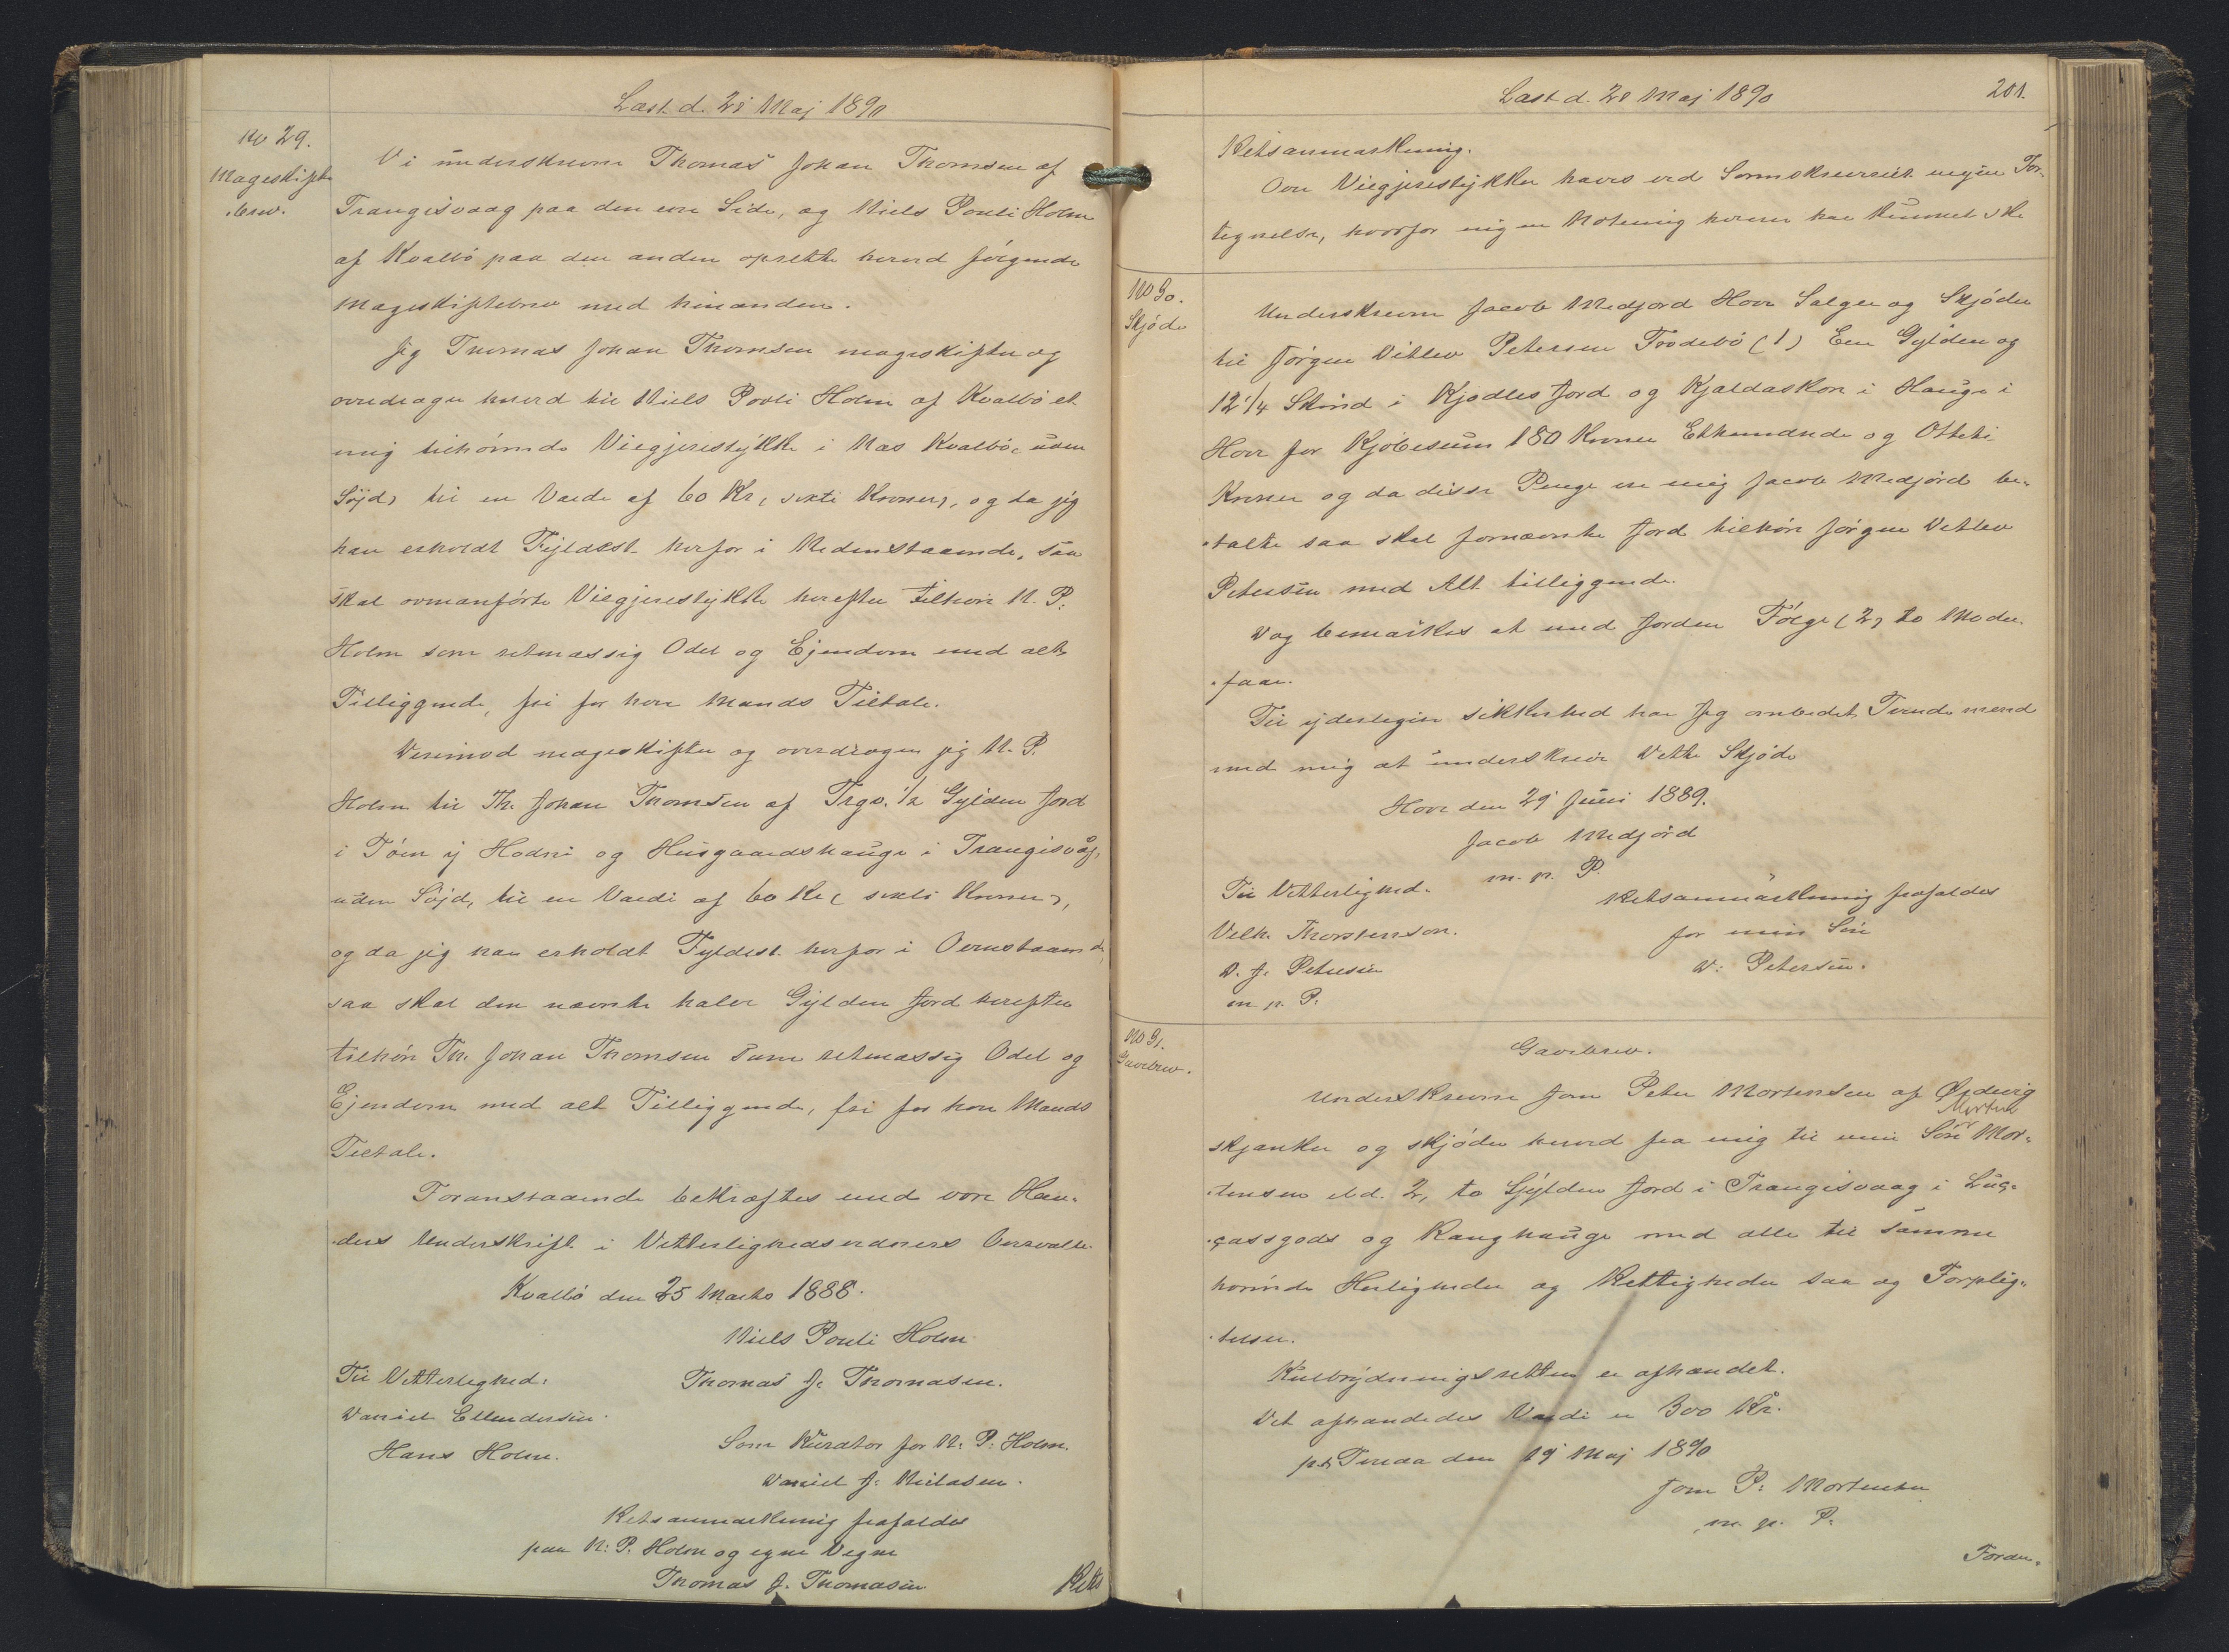 Læst d. 28 Maj 1890
No 29.
Mageskifte
brev.
Vi underskrevne Thomas Johan Thomsen af
Trangisvaag paa den ene Side, og Niels Pouli Holm
af Kvalbö paa den anden oprette herved fölgende
Mageskiftebrev med hinanden.
Jeg Thomas Johan Thomsen mageskifter og
overdrager herved til Niels Povli Holm af Kvalbö et
mig tilhörende Viegjerestykke i Nes Kvalbö, uden
Söjd, til en Værde af 60 Kr, sexti Kroner, og da jeg
har erholdt Fyldest herfor i Nedenstaaende, saa
skal ovenanförte Viegjerestykke herefter tilhöre N. P:
Holm som retmæssig Odel og Ejendom med alt
Tilliggende, fri for hver Mands Tiltale.
Derimod mageskifter og overdrager jeg N. P.
Holm til Th. Johan Thomsen af Trgv. 1/2 Gylden Jord
i Töen ij Hodni og Husgaardshauge i Trangisvåg,
uden Söjd, til en Værdi af 60 Kr ( sexti Kroner ),
og da jeg har erholdt Fyldest herfor i Ovenstaaende,
saa skal den nævnte halve Gylden Jord herefter
tilhöre Th. Johan Thomsen som retmæssig Odel og
Ejendom med alt Tilliggende, fri for hver Mands
Tiltale.
Foranstaaende bekræftes med vore Hæn-
ders Underskrift i Vitterlighedsvidners Overværelse.
Kvalbö den 25 Marts 1888.
Niels Pouli Holm
Til Vitterlighed:
Thomas J: Thomasen.
Daniel Ellendersen.
Hans Holm.
Som Kurator for N: P: Holm.
Daniel J: Nielasen.
Retsanmærkning frafaldes
paa N: P. Holm og egne Vegne
Thomas J. Thomasen
Rets
Læst d. 28 Maj 1890
201.
Retsanmærkning.
Over Viegjerestykker haves ved Sorenskriveriet ingen For-
tegnelse, hvorfor ingen Notering herom har kunnet ske
No 30.
Skjöde
Underskrevne Jacob Midjord Hove Sælger og Skjöder
til Jörgen Ditlev Petersen Frodebö (1) Een Gylden og
12 1/4 Skind i Kjodles Jord og Kjaldaskor i Hauge i
Hove for Kjöbesum 180 Kroner Ethundrede og Otteti
Kroner og da disse Penge er mig Jacob Midjord be-
talte saa skal fornævnte Jord tilhöre Jörgen Ditlev
Petersen med Alt tilliggende.
Dog bemærkes at med Jorden Fölge (2) to Moder-
faar.
Til yderlegire sikkerhed har Jeg ombedet Tvende mænd
med mig at underskrive Dette Skjöde
Hove den 29 Juni 1889.
Jacob Midjord
m. p. P.
Til Vitterlighed.
Velh. Thorstenson.
D. J. Petersen
m p. P:
Retsanmärkning frafaldes
for min Sön
D: Petersen.
No 31.
Gavebrev.
Gavebrev.
Underskrevne Joen Peter Mortensen af Ördevig
skjænker og skjöder herved fra mig til min Sön Morten Mor-
tensen ibd. 2, to Gylden Jord i Trangisvaag i Luç-
çassgods og Ranghauge med alle til samme
hörende Herligheder og Rettigheder saa og Forplig-
telser.
Kulbrydningsretten er afhændet.
Det afhændedes Værdi er 300 Kr.
pt. Tveraa den 19 Maj 1890
Joen P: Mortensen
m. p. P:
Foran-